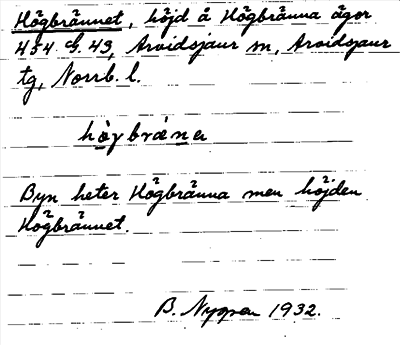 Högbrännet, höjd å Högbränna ägor
454 G. 43, Arvidsjaur sn, Arvidsjaur
tg, Norrb. l.
hògbrǽne
Byn heter Högbränna men höjden
Högbrännet.
B. Nygren 1932.